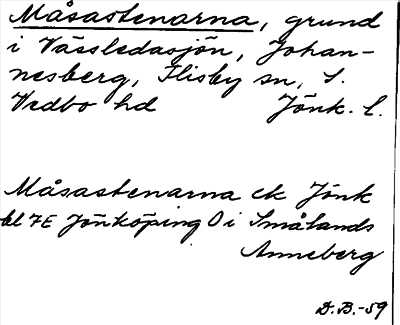 Måsastenarna, grund
i Vässledasjön, Johan-
nesberg, Flisby sn, S.
Vedbo hd Jönk. l.
Måsastenarna ek Jönk
bl 7E Jönköping O i Smålands
Anneberg
D.B.-59